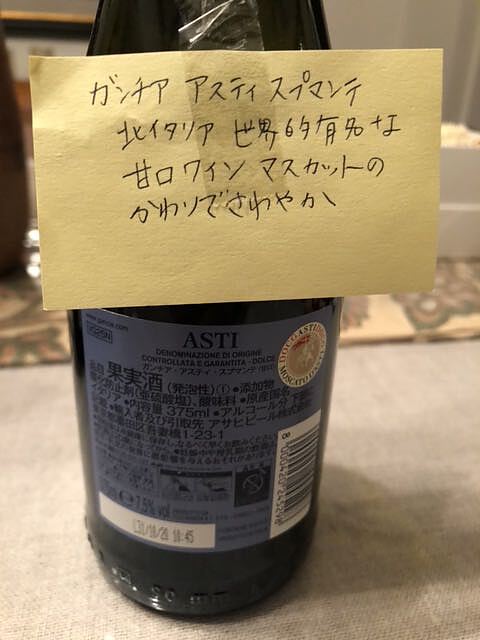 ガンチア アスティ スプマンテ
北イタリア 世界的有名な
甘口ワイン マスカットの
かわりでさわやか
ASTI
DENOMINAZIONE DI ORIGINE
CONTROLLATA E GARANTITA - DOLCE
ガンチア・アスティ・スプマンテ
果実酒 (発泡性)① ●添加物
酸化防止剤(亜硫酸塩)、酸味料 ●原産国名
イタリア ●内容量 375ml ●アルコール分下部に
●輸入者及び引取先 アサヒビール株式会社
吾妻橋1-23-1
7.5% vol
L31/10/20 10:45